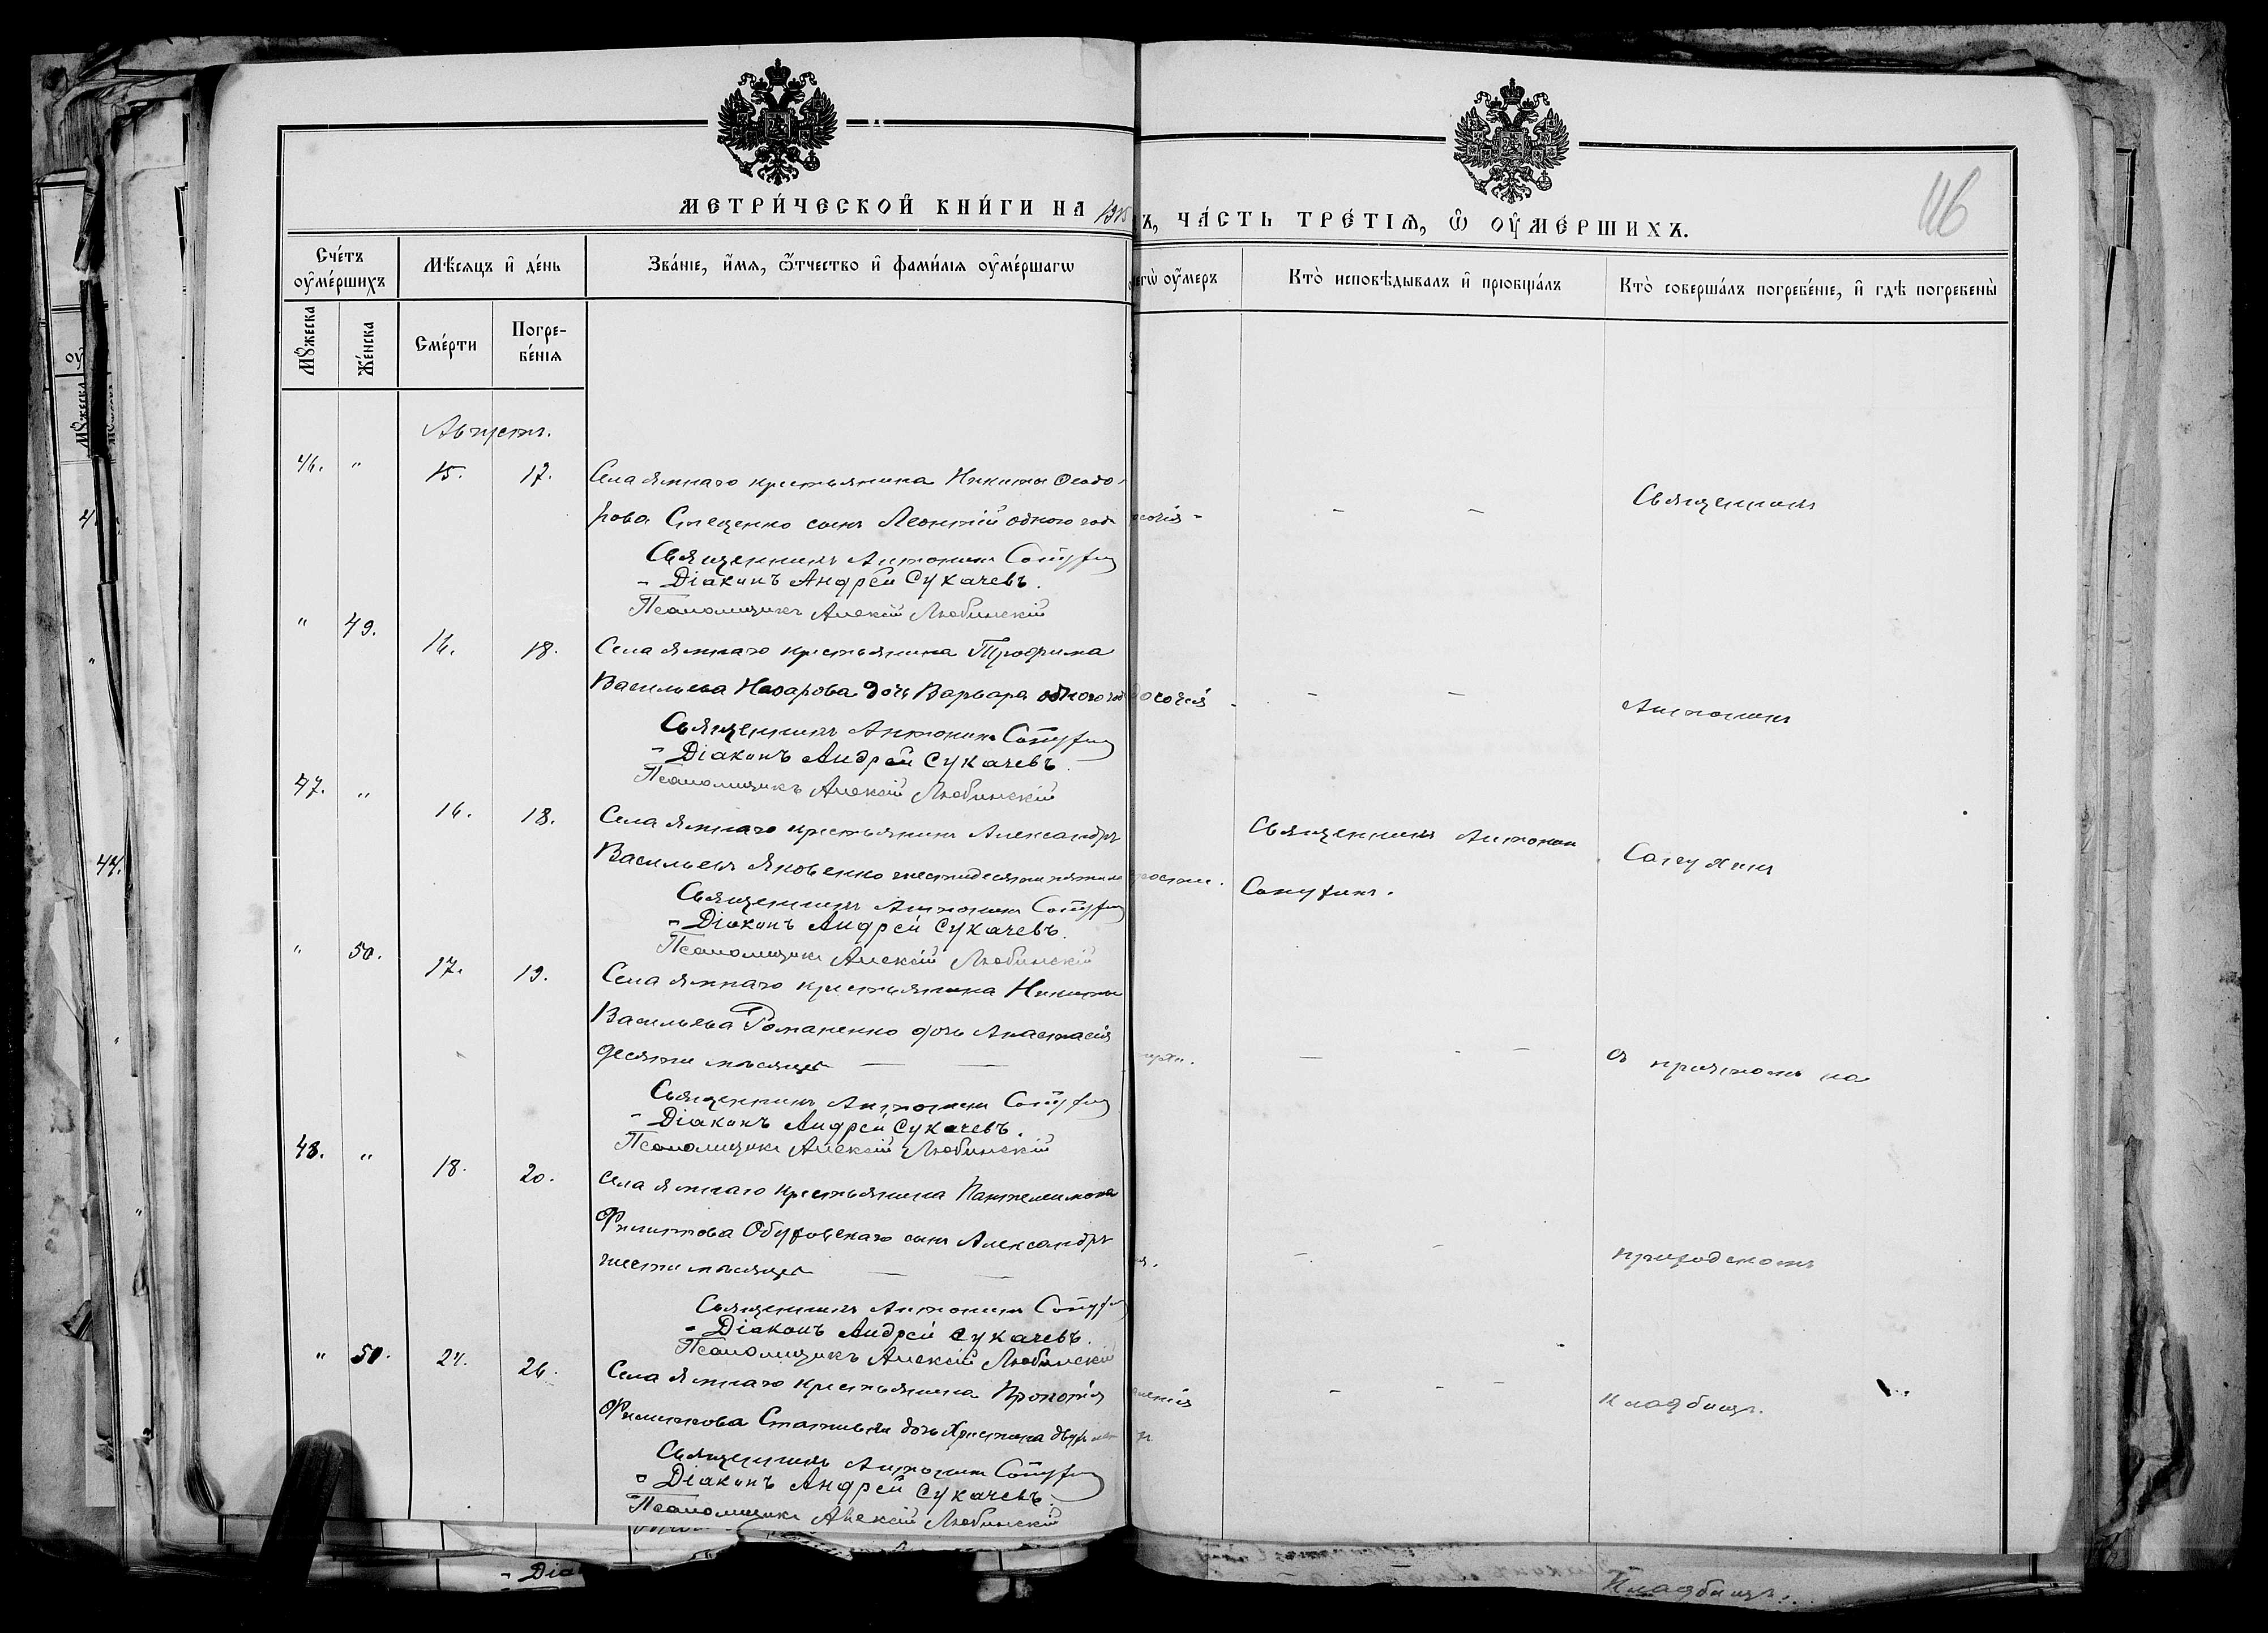 МЕТРИ́ЧЕСКОЙ КНИ́ГИ НА 1915
Ъ, ЧА́СТЬ ТРЕ́ТІѦ, Ѡ ОУМЕ́РШИХЪ.
116
Сче́тъ оуме́ршихъ
Мѣ́сяцъ и де́нь
Зва́ніе, и́мя, о́тчество и фами́лія оуме́ршагѡ
чегѡ̀ оу́меръ
Кто̀ исповѣ́дывалъ и пріобща́лъ
Кто̀ соверша́лъ погребе́ніе, и гдѣ̀ погребены̀
Мꙋ́жеска
Же́нска
Сме́рти
Погре-
бе́нія
Августъ.
46. " 15. 17. Села Ямнаго крестьянина Никиты Ѳеодо-
рова Стеценко сынъ Леонтій одного года
- -
Священникъ
Священникъ Антонин
- Діаконъ Андрей Сукачевъ.
Псаломщикъ Алексій Любинскій
" 49. 16. 18. Села Ямнаго крестьянина Трофима
Васильева Назарова дочь Варвара одного
- -
Антонинъ
Священникъ Антонинъ
- Діаконъ Андрей Сукачевъ.
Псаломщикъ Алексій Любинскій
47. " 16. 18. Села Ямнаго крестьянинъ Александръ
Васильевъ Яковенко шестидесяти пяти
Священникъ Антонин
Священникъ Антонинъ
- Діаконъ Андрей Сукачевъ.
Псаломщикъ Алексій Любинскій
" 50. 17. 19. Села Ямнаго крестьянина Никиты
Васильева Романенко дочь Анастасія
десяти мѣсяцевъ — —
— - —
съ причтомъ на
Священникъ Антонинъ
- Діаконъ Андрей Сукачевъ.
Псаломщикъ Алексій Любинскій
48. " 18. 20. Села Ямнаго крестьянина Пантелеимона
Филиппова Обуховскаго сынъ Александръ
шести мѣсяцевъ — —
- -
приходскомъ
Священникъ Антонинъ
- Діаконъ Андрей Сукачевъ.
Псаломщикъ Алексій Любинскій
" 51. 24. 26. Села Ямнаго крестьянина Прокопія
Филиппова дочь Христина двухъ
- - -
кладбищѣ.
Священникъ Антонинъ
- Діаконъ Андрей Сукачевъ.
Псаломщикъ Алексій Любинскій
- Діа
Кладбищѣ.